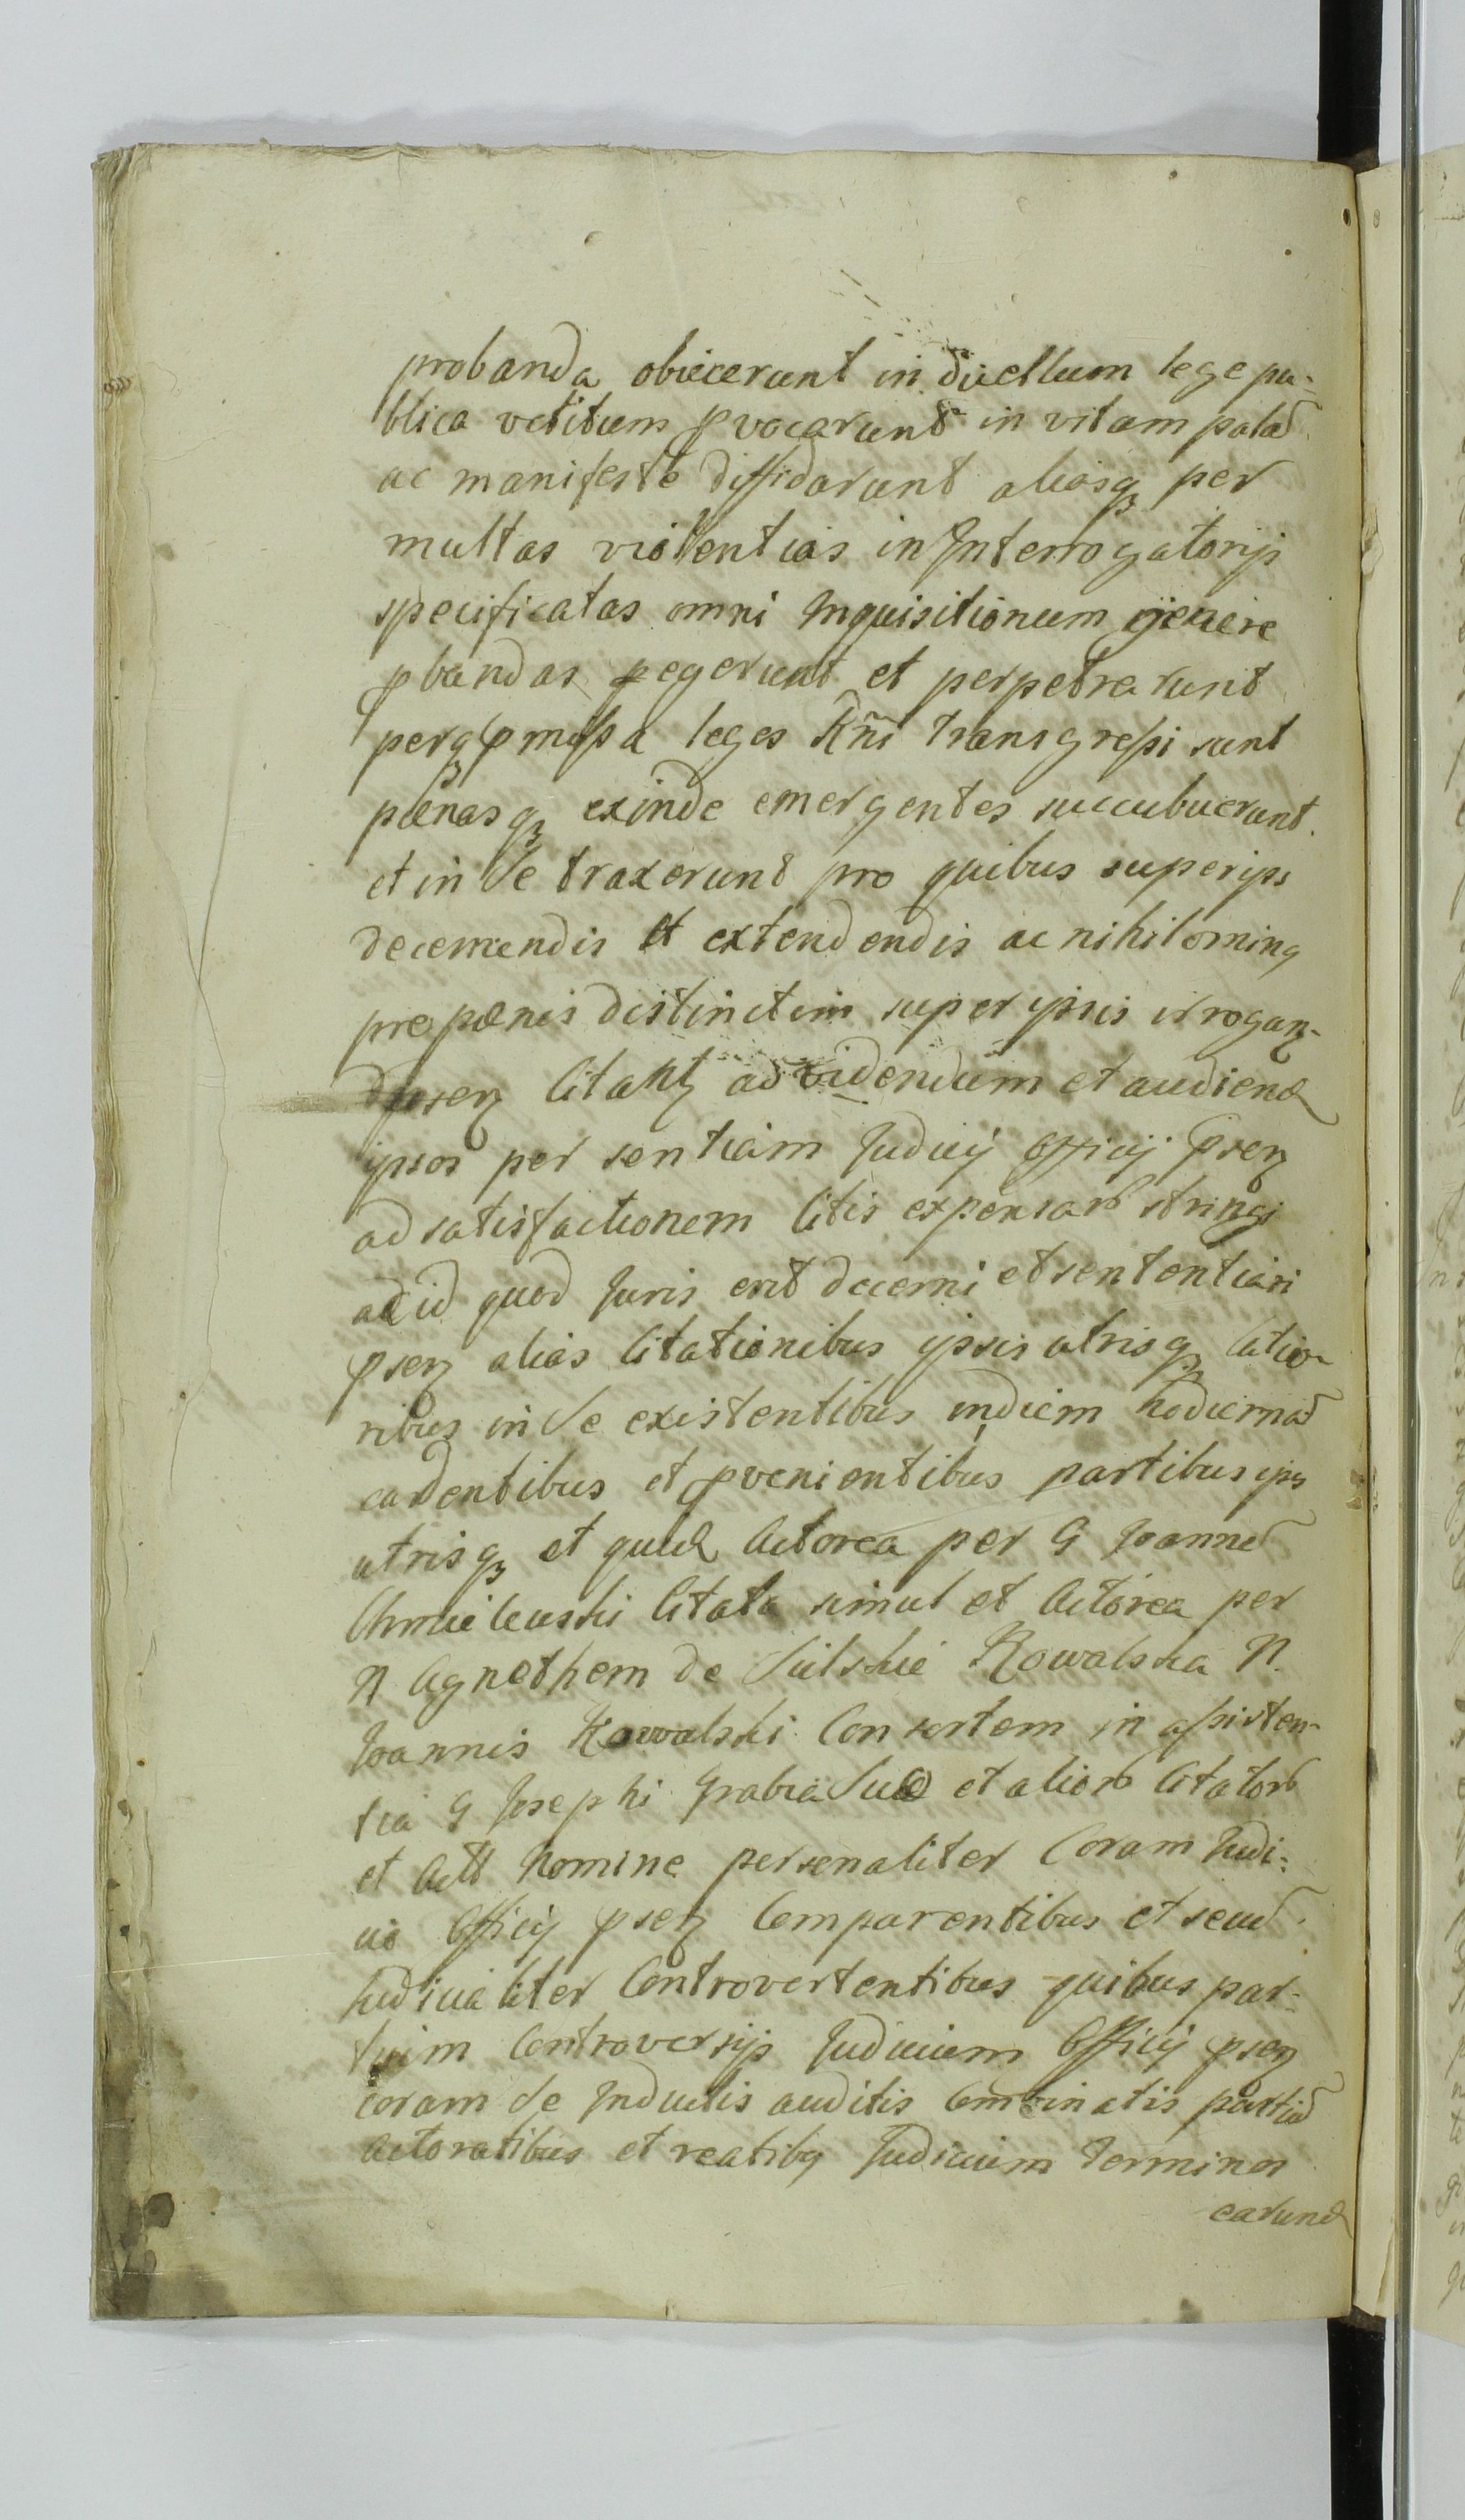 probanda obiecerunt in duellum lege pu-
blica vetitum pvocarunt in vitam palã
ac manifeste diffidarunt aliasqz per
multas violentias in Interrogatorijs
specificatas omni Inquisitionum genere
pbandas pegerunt et perpetrarunt
perqz pmissa leges Rñi transgressi sunt
pænasqz exinde emergentes succubuerunt.
et in se traxerunt pro quibus super ips
decernendis et extendendis ac nihilominq
pre pænis distinctim super ipsis irrogan-
psen Citatt ad videndum et audiend
ipsos per sentiam Judicij Officij psen
ad satisfactionem litis expensar stringi
ad id quod Juris erit decerni et sententiari
psen alias Citationibus ipsis utrisqz Actio-
nibus in se existentibus in diem hodiernã
cadentibus et pvenientibus partibus ips
utrisqz et quid Actorea per G Joannẽ
Chmielewski Citata simul et Actorea per
N Agnethem de Kowalska N.
Joannis Kowalski Consortem in assisten-
tia G Josephi Grabia suo et alior Citator
et Actt Nomine personaliter Coram Judi-
cio Officij psen Comparentibus et secũ
Judicialiter Controvertentibus quibus par-
tium Controversijs Judicium Officij psen
coram se Inductis auditis Combinatis partiũ
Actoratibus et reatibq Judicium Terminos
earund